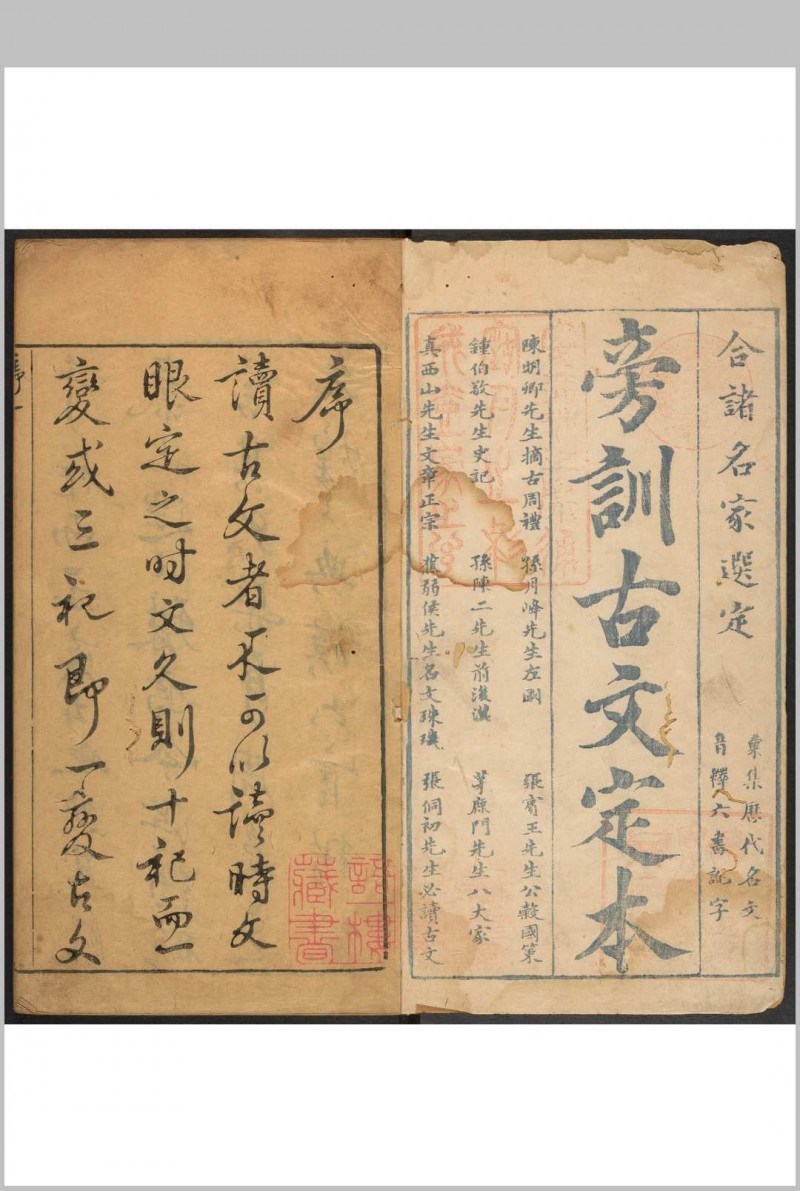 合諸名家選定
彙集歷代名文
音釋六書訛字
旁訓古文定本
陳明卿先生摘古周禮 孫月峰先生左國 張賓王先生公穀國策
鍾伯敬先生史記 孫陳二先生前後漢 茅鹿門先生八大家
真西山先生文章正宗 焦弱侯先生名文珠璣 張侗初先生必讀古文
序
讀古文者不可以讀時文
眼定之時文久則十祀而一
變或三祀即一變古文
藏書
序一